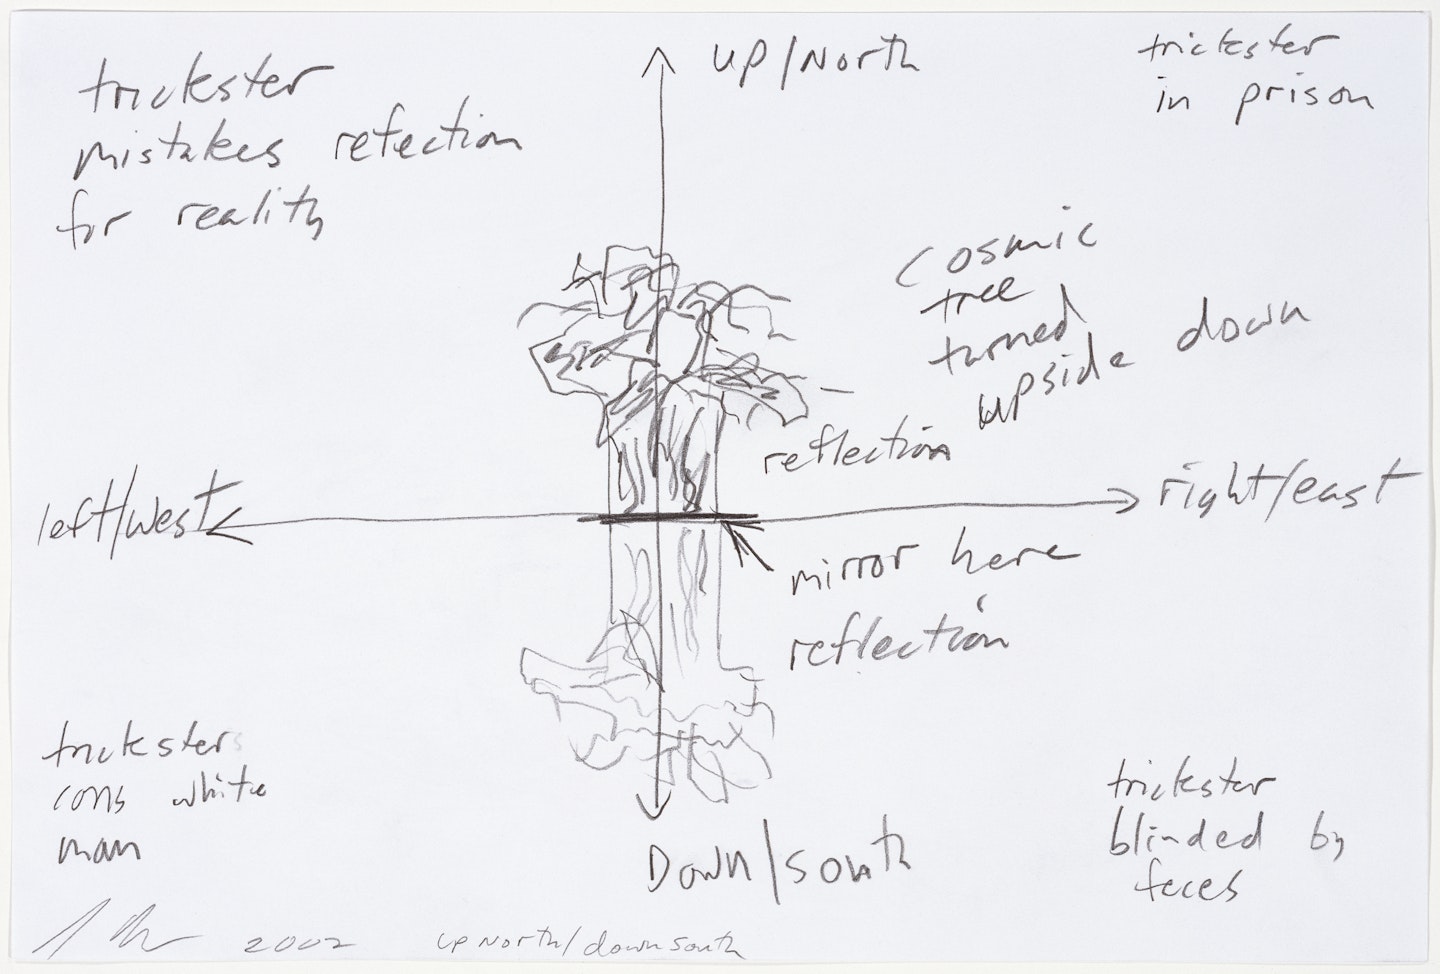 trickster
mistakes refection
for reality
up/North
trickster
in prison
cosmic
tree
turned
upside down
reflection
left/west
right/east
mirror here
reflection
tricksters
cons white
man
trickster
blinded by
feces
Down/south
2002
up North/down south